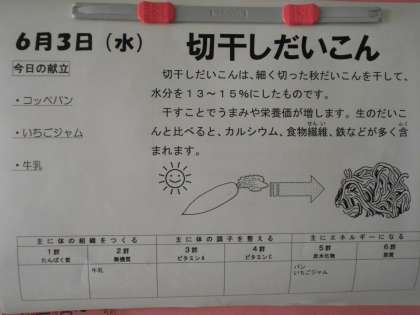 6月3日(水)
切干しだいこん
今日の献立
・コッペパン
・いちごジャム
・牛乳
切干しだいこんは、細く切った秋だいこんを干して、
水分を13～15%にしたものです。
干すことでうまみや栄養価が増します。生のだいこ
んと比べると、カルシウム、食物繊維、鉄などが多く含
まれます。
主に体の組織をつくる
主に体の調子を整える
主にエネルギーになる
1群
たんぱく質
2群
無機質
3群
ビタミンA
4群
ビタミンC
5群
炭水化物
6群
脂質
牛乳
パン
いちごジャム